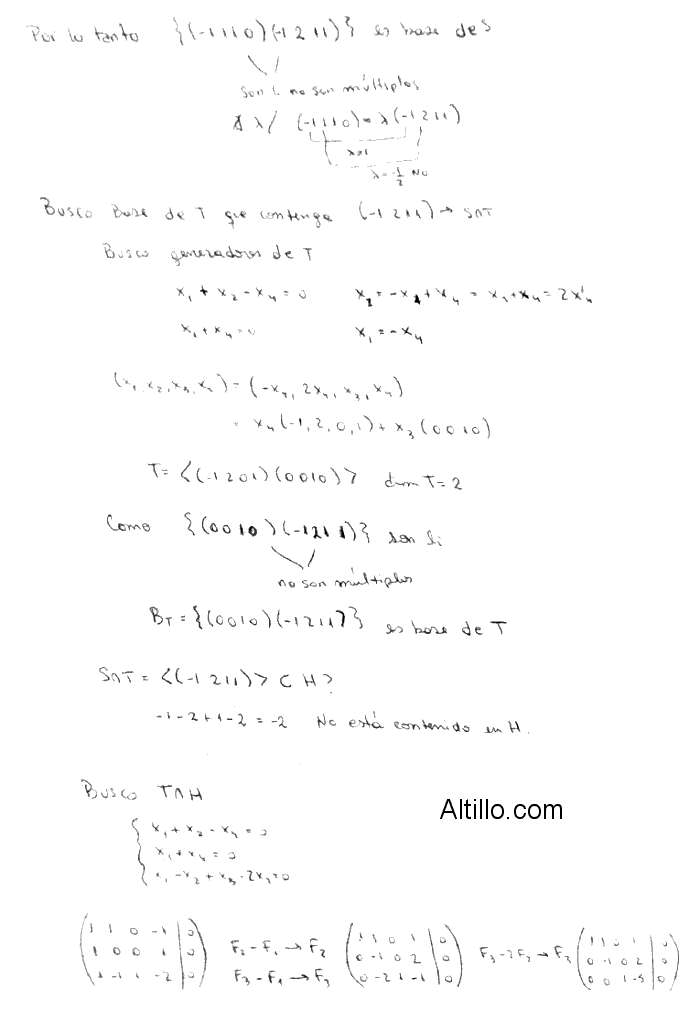 Por lo tanto {(-1 1 1 0)(-1 2 1 1)} es base de S
son li no son múltiplos
∄ λ / (-1 1 1 0) = λ(-1 2 1 1)
λ=1
λ=-1/2 No
Busco Base de T que contenga (-1 2 1 1) → S∩T
Busco generadores de T
x₁ + x₂ - x₄ = 0 x₂ = -x₁ + x₄ = x₄ + x₄ = 2x₄
x₁ + x₄ = 0 x₁ = -x₄
(x₁, x₂, x₃, x₄) = (-x₄, 2x₄, x₃, x₄)
= x₄(-1, 2, 0, 1) + x₃(0 0 1 0)
T = <(-1 2 0 1)(0 0 1 0)> dim T = 2
Como {(0 0 1 0)(-1 2 1 1)} son li
no son múltiplos
B_T = {(0 0 1 0)(-1 2 1 1)} es base de T
S∩T = <(-1 2 1 1)> ⊂ H?
-1-2+1-2 = -2 No está contenido en H.
Busco T∩H
Altillo.com
{ x₁ + x₂ - x₄ = 0
x₁ + x₄ = 0
x₁ - x₂ + x₃ - 2x₄ = 0
(1 1 0 -1 | 0) (1 1 0 1 | 0) (1 1 0 1 | 0)
(1 0 0 1 | 0) F₂-F₁→F₂ (0 -1 0 2 | 0) F₃-2F₂→F₃ (0 -1 0 2 | 0)
(1 -1 1 -2 | 0) F₃-F₁→F₃ (0 -2 1 -1 | 0) (0 0 1 -5 | 0)